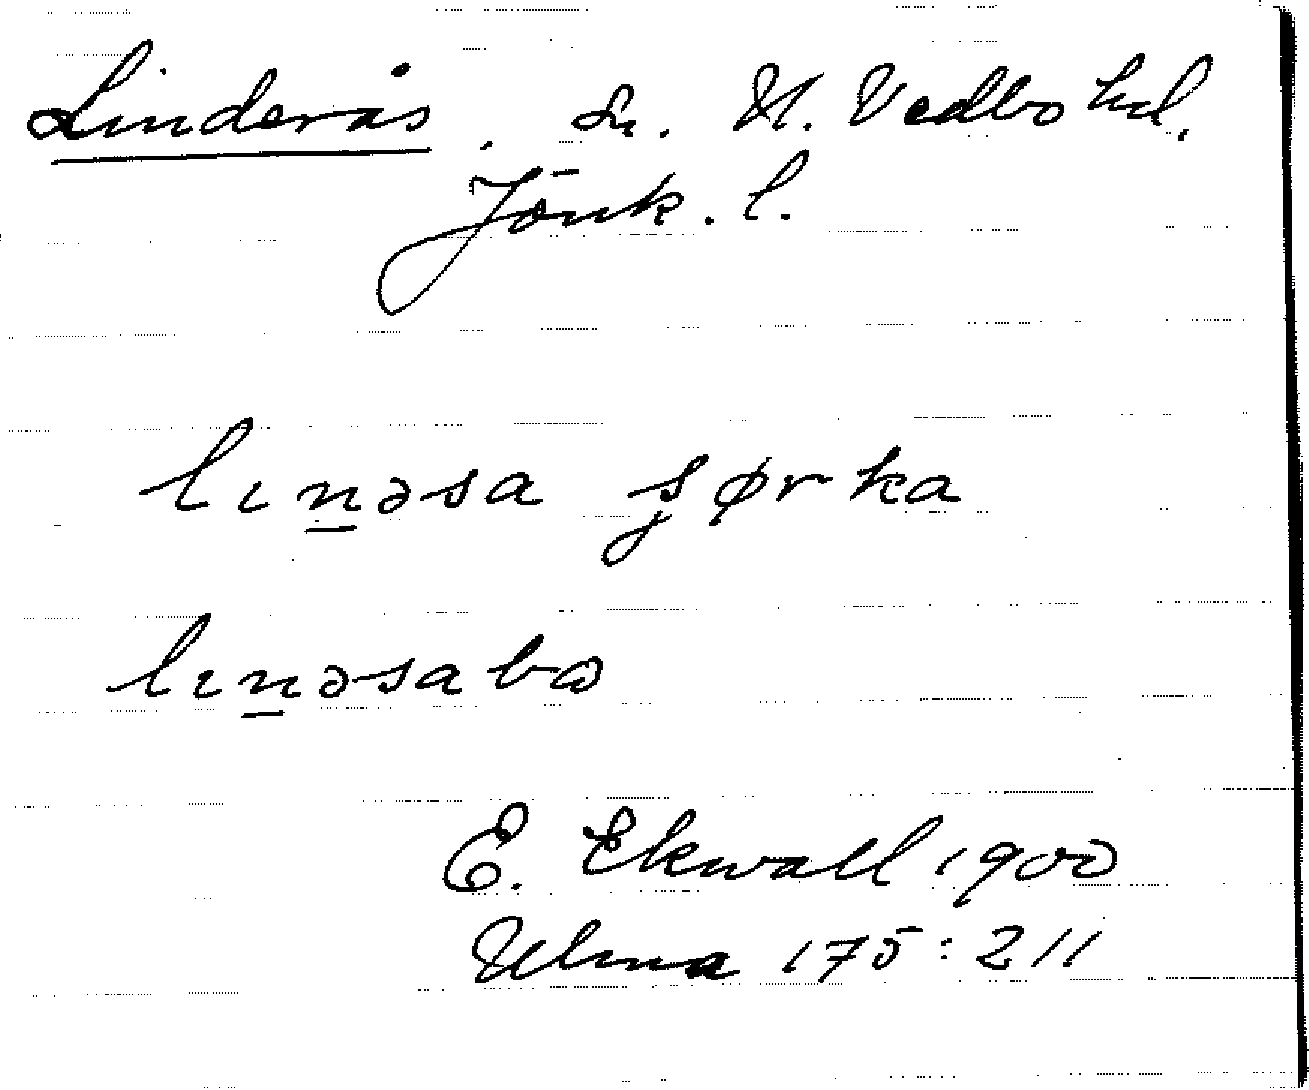 Linderås. Sn. N. Vedbo hd.
Jönk. l.
lın̲əsa şørka
lın̲əsabɷ
E. Ekwall 1900
Ulma 175:211